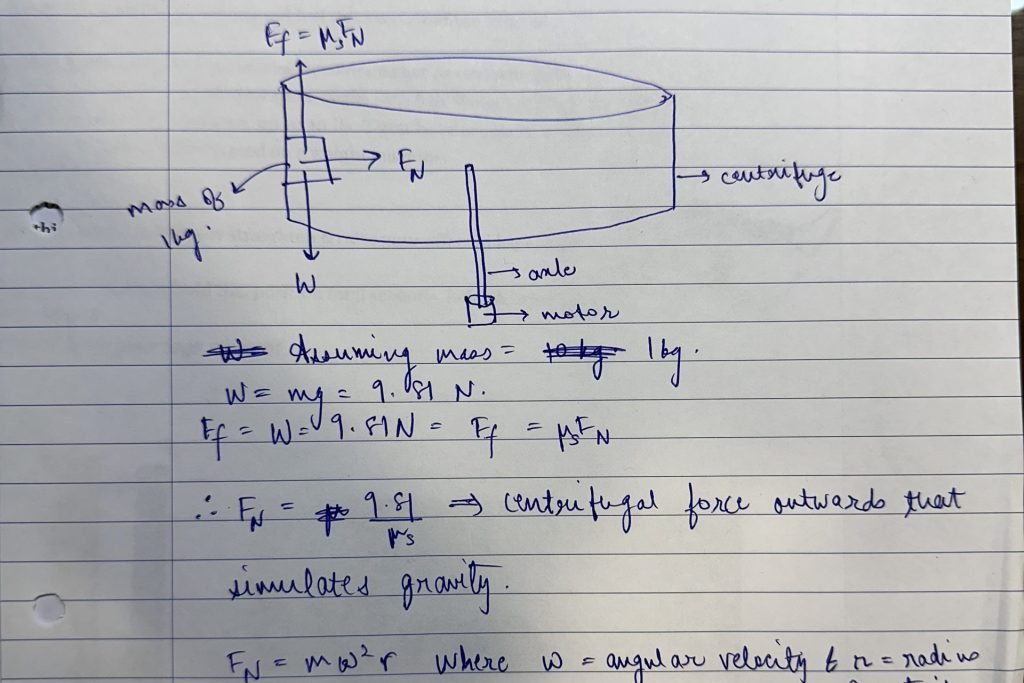 Ff = μsFN
FN
centrifuge
mass of
1kg.
W
axle
motor
Assuming mass = 1kg.
W = mg = 9.81 N.
Ff = W = 9.81N = Ff = μsFN
∴ FN = 9.81/μs ⇒ centrifugal force outwards that
simulates gravity.
FN = mω²r where ω = angular velocity & r = radius